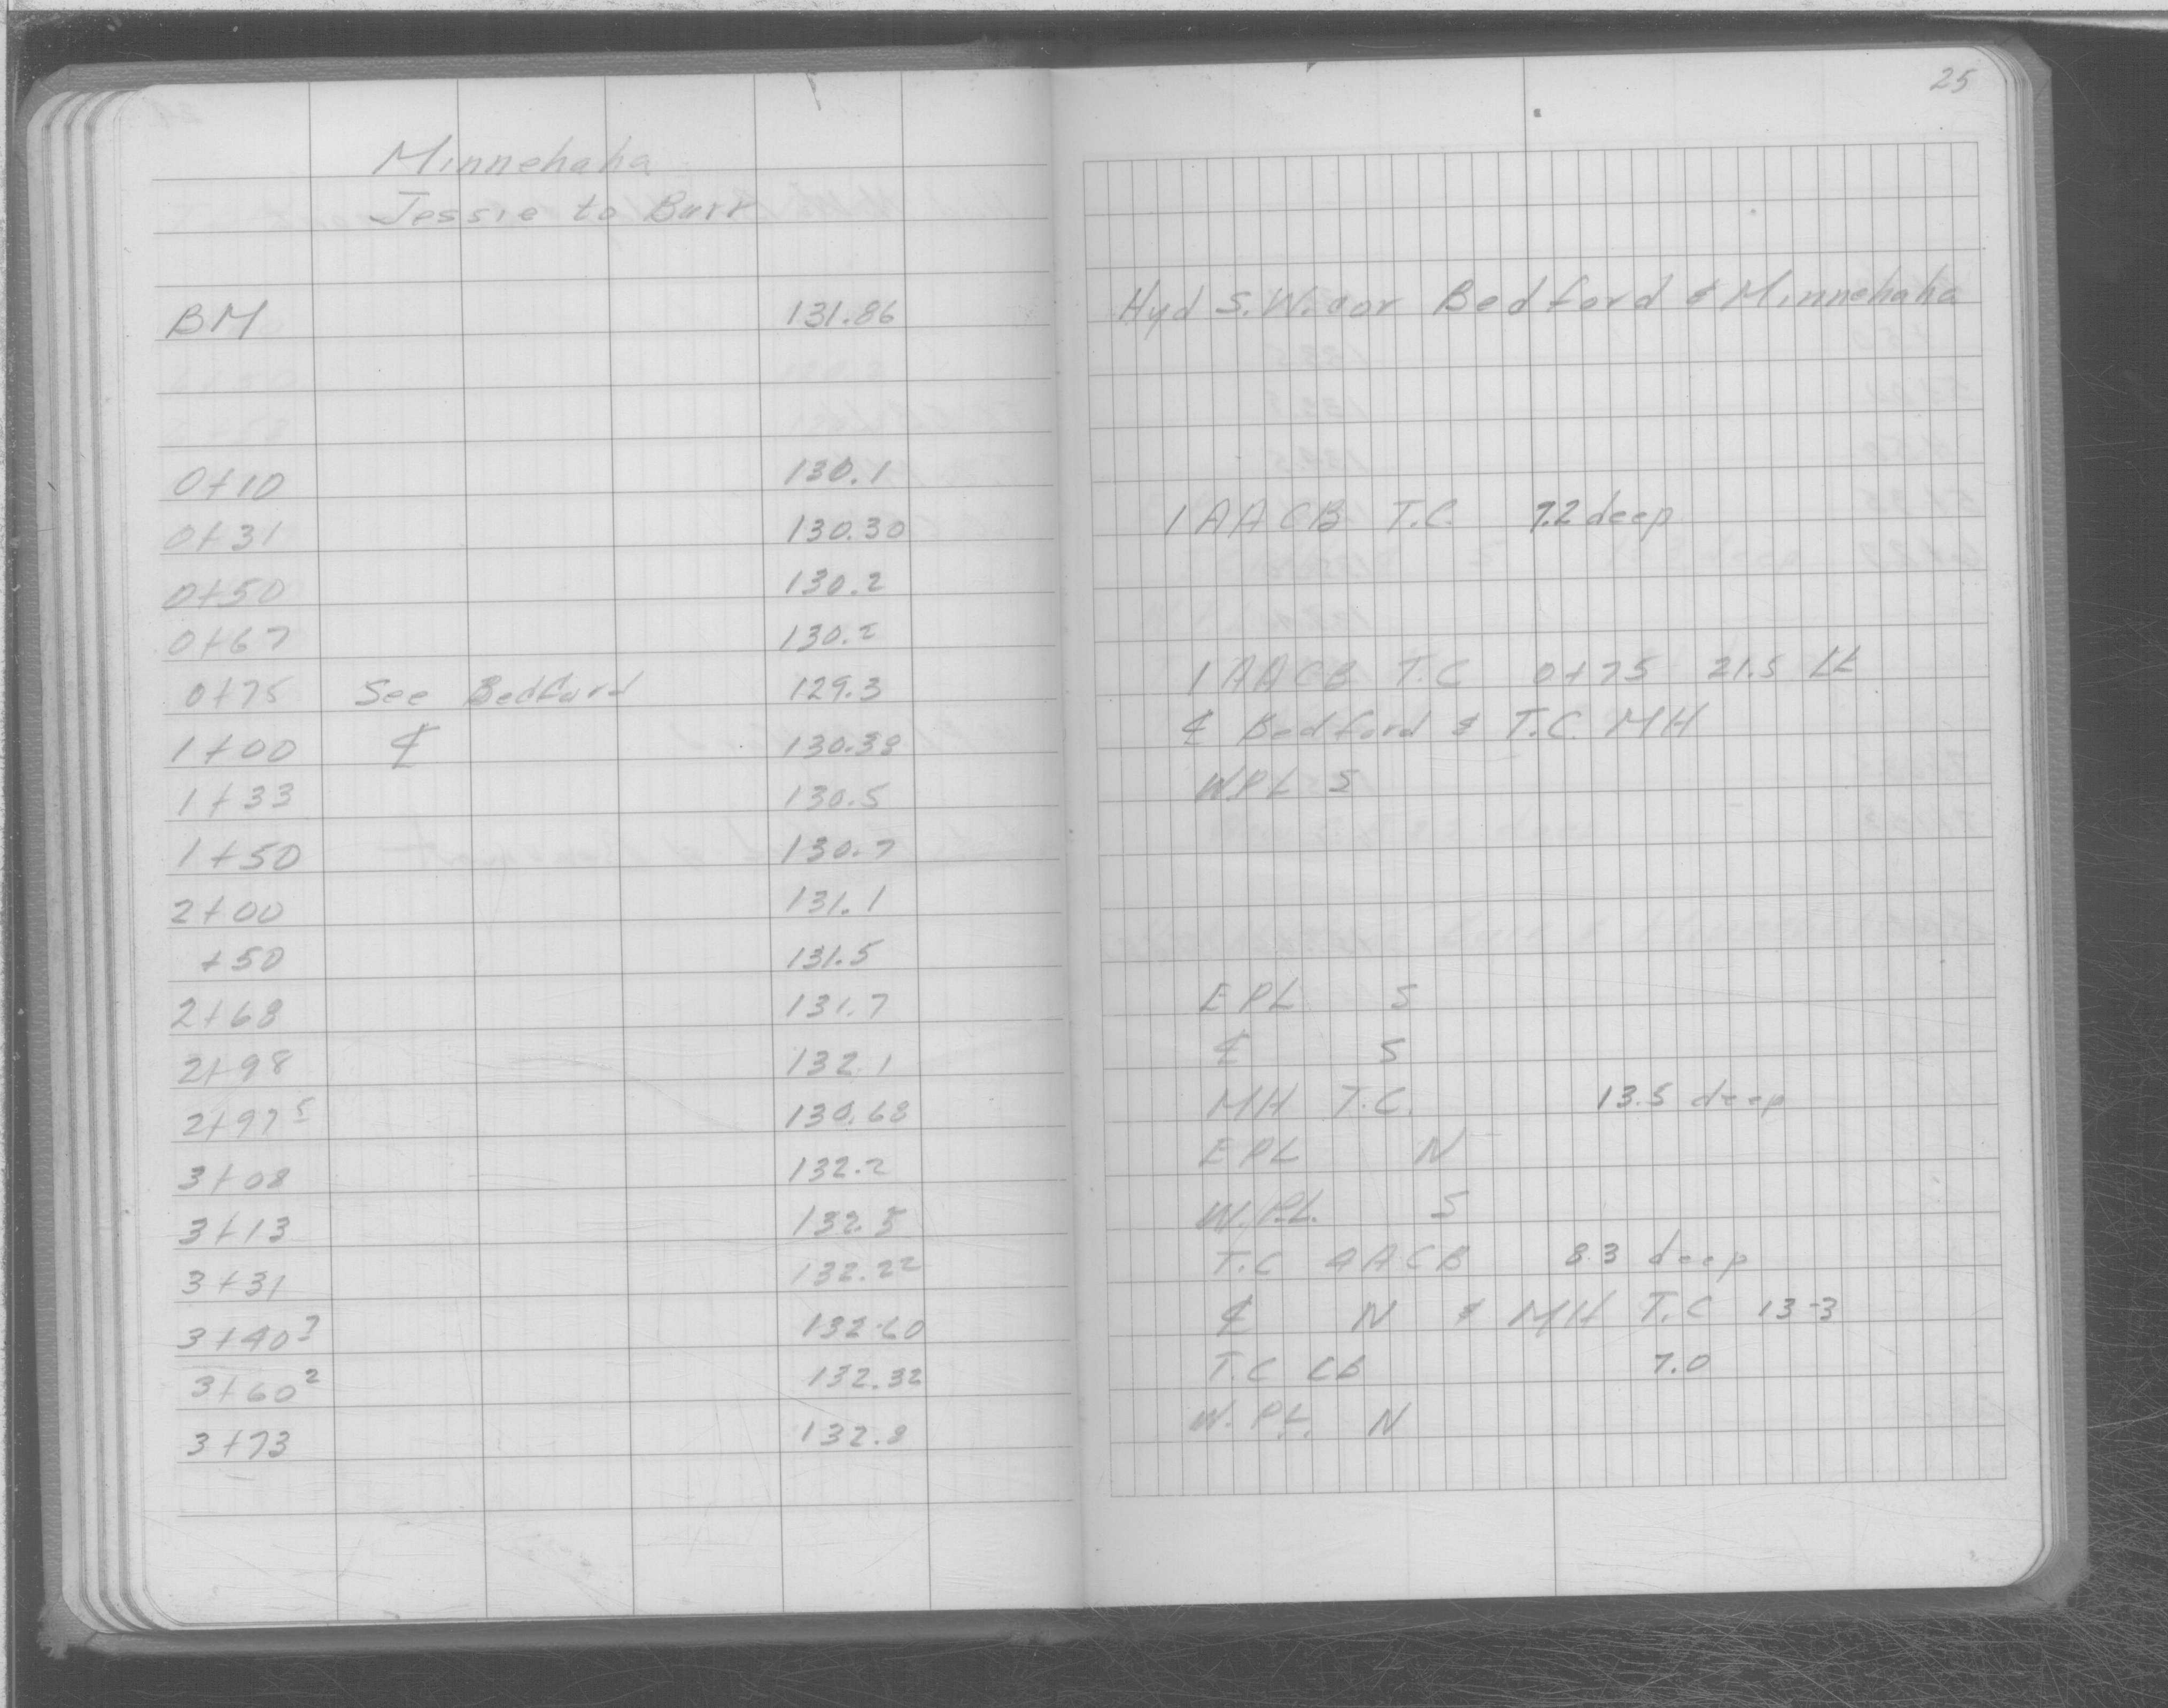 25
Minnehaha
Jessie to Burr
BM 131.86 Hyd S.W. cor Bedford & Minnehaha
0+10 130.1
0+31 130.30 1 AACB T.C. 7.2 deep
0+50 130.2
0+67 130.2
0+75 See Bedford 129.3 1 AACB T.C 0+75 21.5 Lt
1+00 ℄ 130.38 ℄ Bedford & T.C. MH
1+33 130.5 W.P.L S
1+50 130.7
2+00 131.1
+50 131.5
2+68 131.7 E PL S
2+98 132.1 ℄ S
2+97⁵ 130.68 MH T.C. 13.5 deep
3+08 132.2 E PL N
3+13 132.5 W.P.L. S
3+31 132.22 T.C AACB 8.3 deep
3+40³ 132.60 ℄ N & MH T.C 13-3
3+60² 132.32 T.C CB 7.0
3+73 132.8 W.P.L. N